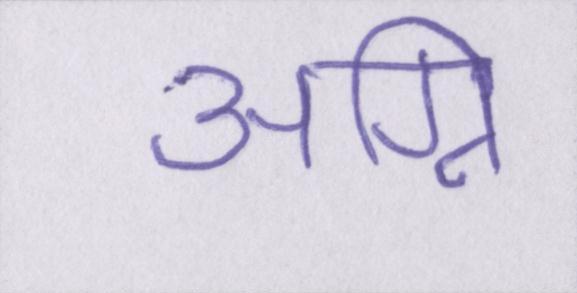 अग्नि